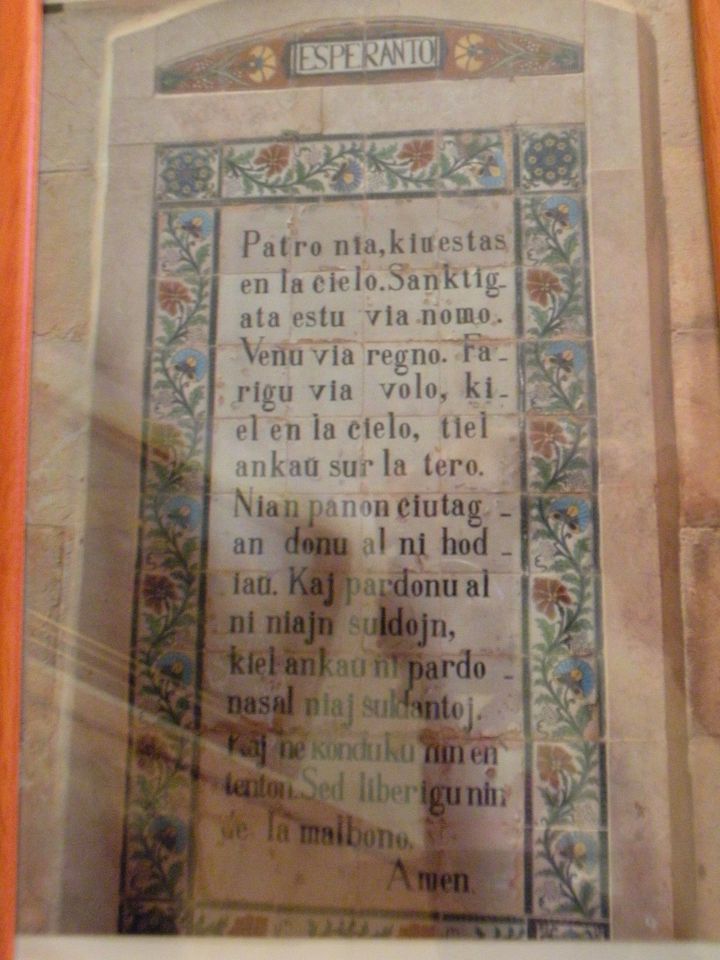 ESPERANTO
Patro nia, kiu estas
en la ĉielo. Sanktig-
ata estu via nomo.
Venu via regno. Fa-
rigu via volo, ki-
el en la ĉielo, tiel
ankaŭ sur la tero.
Nian panon ĉiutag-
an donu al ni hod-
iaŭ. Kaj pardonu al
ni niajn ŝuldojn,
kiel ankaŭ ni pardo-
nas al niaj ŝuldantoj.
Kaj ne konduku nin en
tenton. Sed liberigu nin
de la malbono.
Amen.